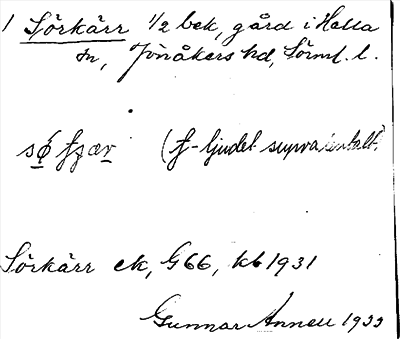 1 Sörkärr 1/2 bek, gård i Hella
sn, Jönåkers hd, Sörml. l.
(ʃ-ljudet supradentalt)
Sörkärr ek, G66, kb 1931
Gunnar Annell 1933